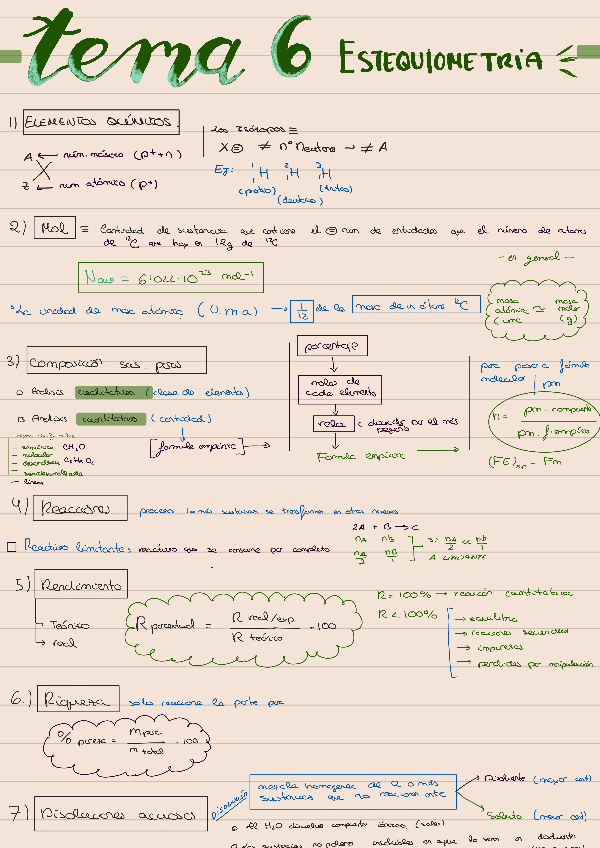 tema 6 ESTEQUIOMETRIA
1) ELEMENTOS QUÍMICOS.
A ← núm. másico (p⁺+n)
X
Z ← num atómico (p⁺)
Los Isótopos ≡
X ≡ ≠ nº Neutrons → ≠ A
Ej: ¹₁H ²₁H ³₁H
(protio) (tritio)
(deuterio)
2) Mol ≡ Cantidad de sustancia que contiene el = num de entidades que el número de átomos
de ¹²C que hay en 12g de ¹²C
N = 6'022·10²³ mol⁻¹
La unidad de masa atómica (u.m.a) → 1/12 de la masa de un átomo ¹²C
- en general -
masa atómica (uma) ≃ masa molar (g)
3) Composición
Análisis cualitativo (clase de elementos)
Análisis cuantitativo (cantidad)
empírica CH₂O
molecular C₆H₁₂O₆
desarrollada
semidesarrollada
líneas
[formula empírica] →
porcentaje
moles de
cada elemento
ratio (dividir por el más
pequeño
Formula empírica
para pasar a fórmula
molecular
pm
n = pm. compuesto / pm. f. empírica
(FE)ₓₙ = Fm
4) Reacciones
proceso 1 o más sustancias se transforman en otras nuevas
2A + B → C
nA nB
nA/2 nB/1
si nA/2 << nB/1
A LIMITANTE
Reactivo limitante: reactivo que se consume por completo
5) Rendimiento
Teórico
→ real
R porcentual = R real/exp. / R teórico · 100
R = 100% → reacción cuantitativa
R < 100%
→ equilibrio
→ reacciones secundarias
→ impurezas
→ perdidas por manipulación
6.) Riqueza solo reacciona la parte pura
% pureza = m pura / m total · 100
7) Disoluciones acuosas
DISOLUCIÓN
mezcla homogenea de 2 o más
sustancias que no reaccionan
Disolvente (mayor cant)
Soluto (menor cant)
El H₂O disuelve compuestos iónicos (sales)